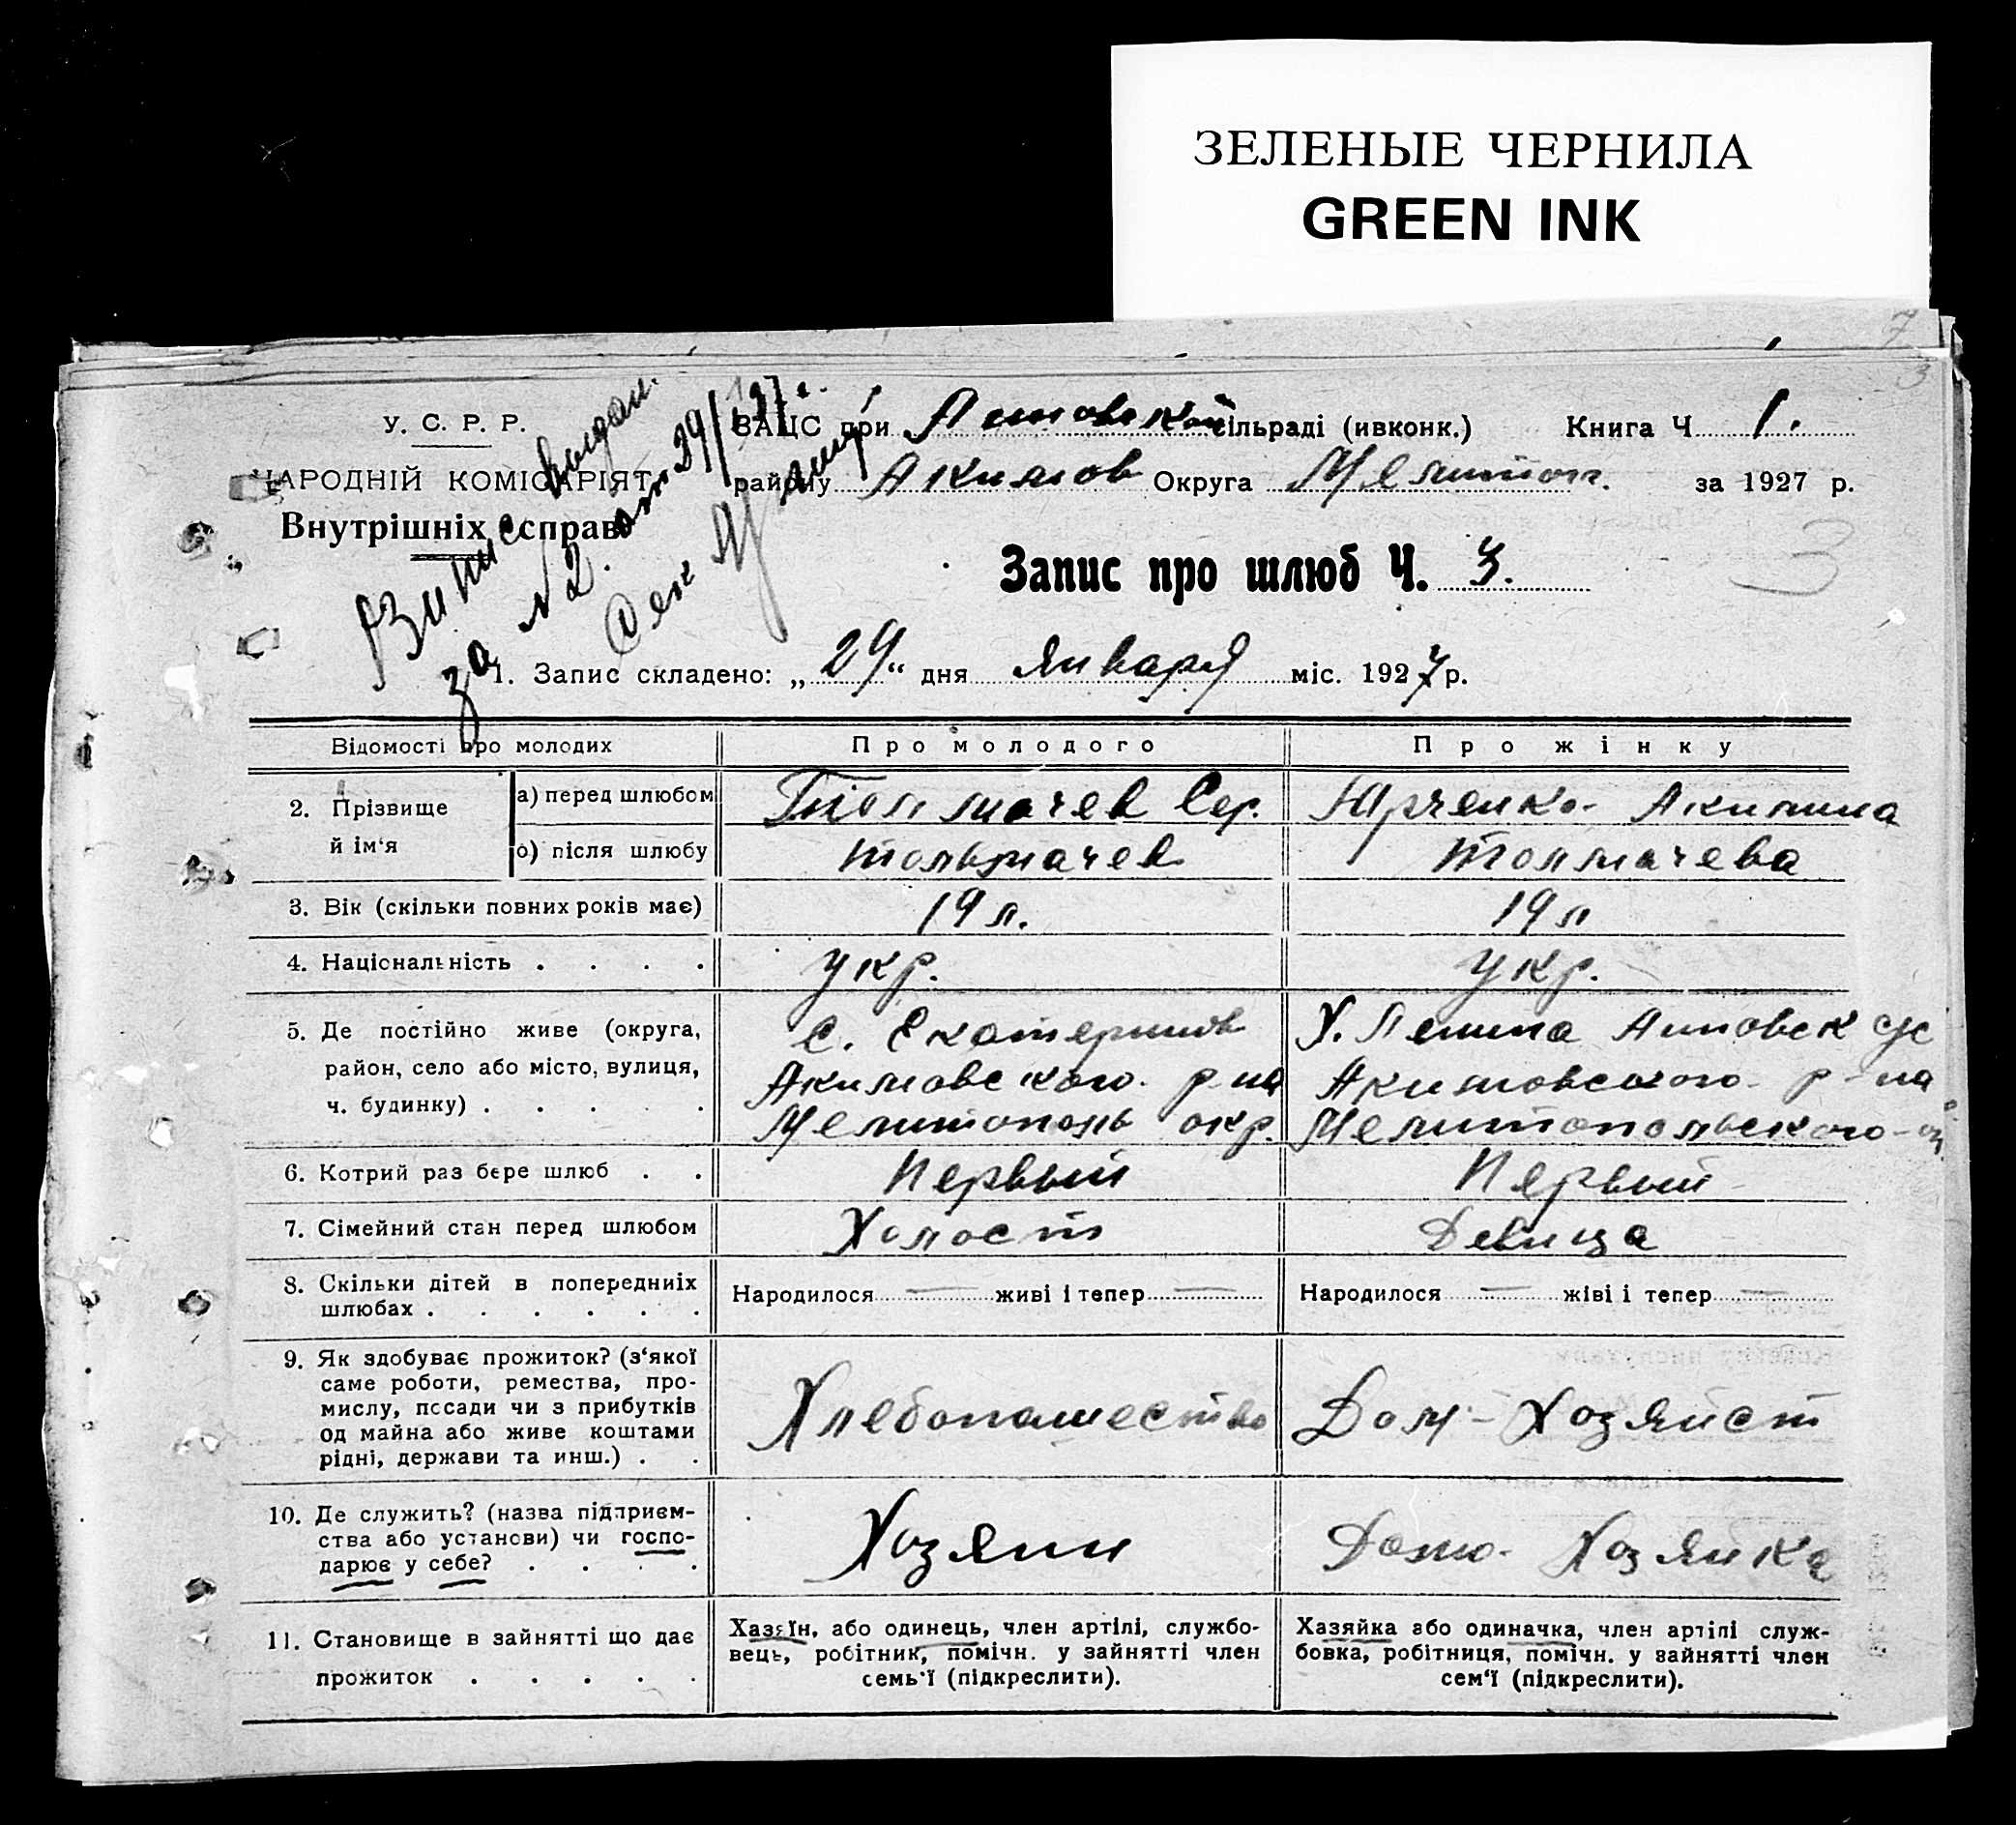 ЗЕЛЕНЫЕ ЧЕРНИЛА
GREEN INK
7
3
У. С. Р. Р.
НАРОДНІЙ КОМІСАРІЯТ
Внутрішніх справ
выдан.
за №2. от 29/I 27 г.
ЗАЦС при Анновской сільраді (ивконк.) Книга Ч 1.
району Акимов Округа Мелитоп. за 1927 р.
Запис про шлюб Ч. 3.
3
1. Запис складено: „29“ дня января міс. 1927 р.
Відомості про молодих Про молодого Про жінку
2. Прізвище й ім‘я
а) перед шлюбом Толмачев Сер. Юрченко Акилина
б) після шлюбу Тольмачев Толмачева
3. Вік (скільки повних років має) 19 л. 19 л
4. Національність . . . . укр. укр.
5. Де постійно живе (округа, С. Екатеринов Х. Ленина Анновск с/с
район, село або місто, вулиця, Акимовского р-на Акимовского р-на
ч. будинку) . . . . . Мелитополь окр. Мелитопольского
6. Котрий раз бере шлюб . . Первый Первый
7. Сімейний стан перед шлюбом Холост Девица
8. Скільки дітей в попередниіх Народилося — живі і тепер — Народилося — жіві і тепер —
шлюбах . . . . . .
9. Як здобуває прожиток? (з‘якої
саме роботи, ремества, про-
мислу, посади чи з прибутків Хлебопашество Дом-Хозяйст
од майна або живе коштами
рідні, держави та инш.) . .
10. Де служить? (назва підприєм-
ства або установи) чи госпо- Хозяин Домо-Хозяйка
дарює у себе? . . . .
11. Становище в зайнятті що дає Хазяїн, або одинець, член артілі, службо- Хазяйка або одиначка, член артілі служ-
вець, робітник, помічн. у зайнятті член бовка, робітниця, помічн. у зайнятті член
прожиток . . . . . семь‘ї (підкреслити). сем‘ї (підкреслити).